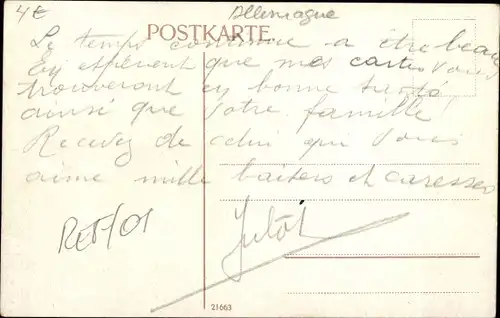 4€
Allemagne
POSTKARTE.
Le temps continue a être beau
En espérent que mes cartes vous
trouveront en bonne santé
ainsi que votre famille
Recevez de celui qui vous
aime mille baisers et caresses
RET/01
21663